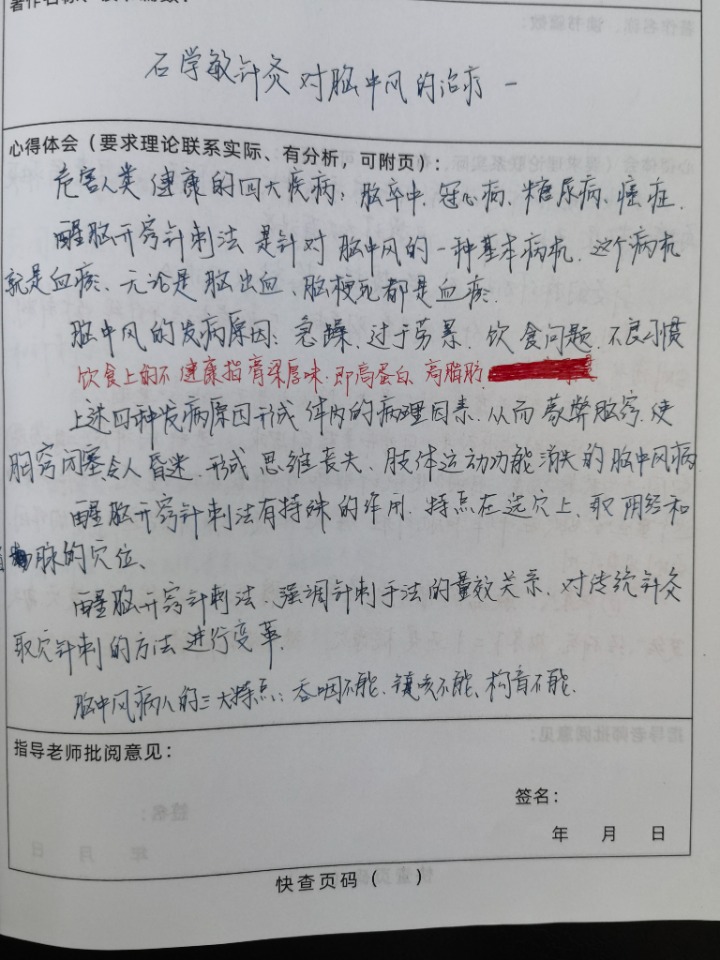 石学敏针灸对脑中风的治疗一
心得体会（要求理论联系实际、有分析，可附页）：
危害人类健康的四大疾病：脑卒中、冠心病、糖尿病、癌症.
醒脑开窍针刺法是针对脑中风的一种基本病机.这个病机
就是血瘀、无论是脑出血、脑梗死都是血瘀.
脑中风的发病原因：急躁、过于劳累、饮食问题.不良习惯
饮食上的不健康指膏梁厚味.即高蛋白、高脂肪
上述四种发病原因形成体内的病理因素.从而蒙弊脑窍.使
胸窍闭塞会人昏迷.形成思维丧失、肢体运动功能消失的脑中风病
醒脑开窍针刺法有特殊的作用.特点在选穴上、取阴经和
脉的穴位、
醒脑开窍针刺法.强调针刺手法的量效关系、对传统针灸
取穴针刺的方法进行变革.
脑中风病人的三大特点：吞咽不能.镜咳不能、构音不能.
指导老师批阅意见：
签名：
年 月 日
快查页码（ ）